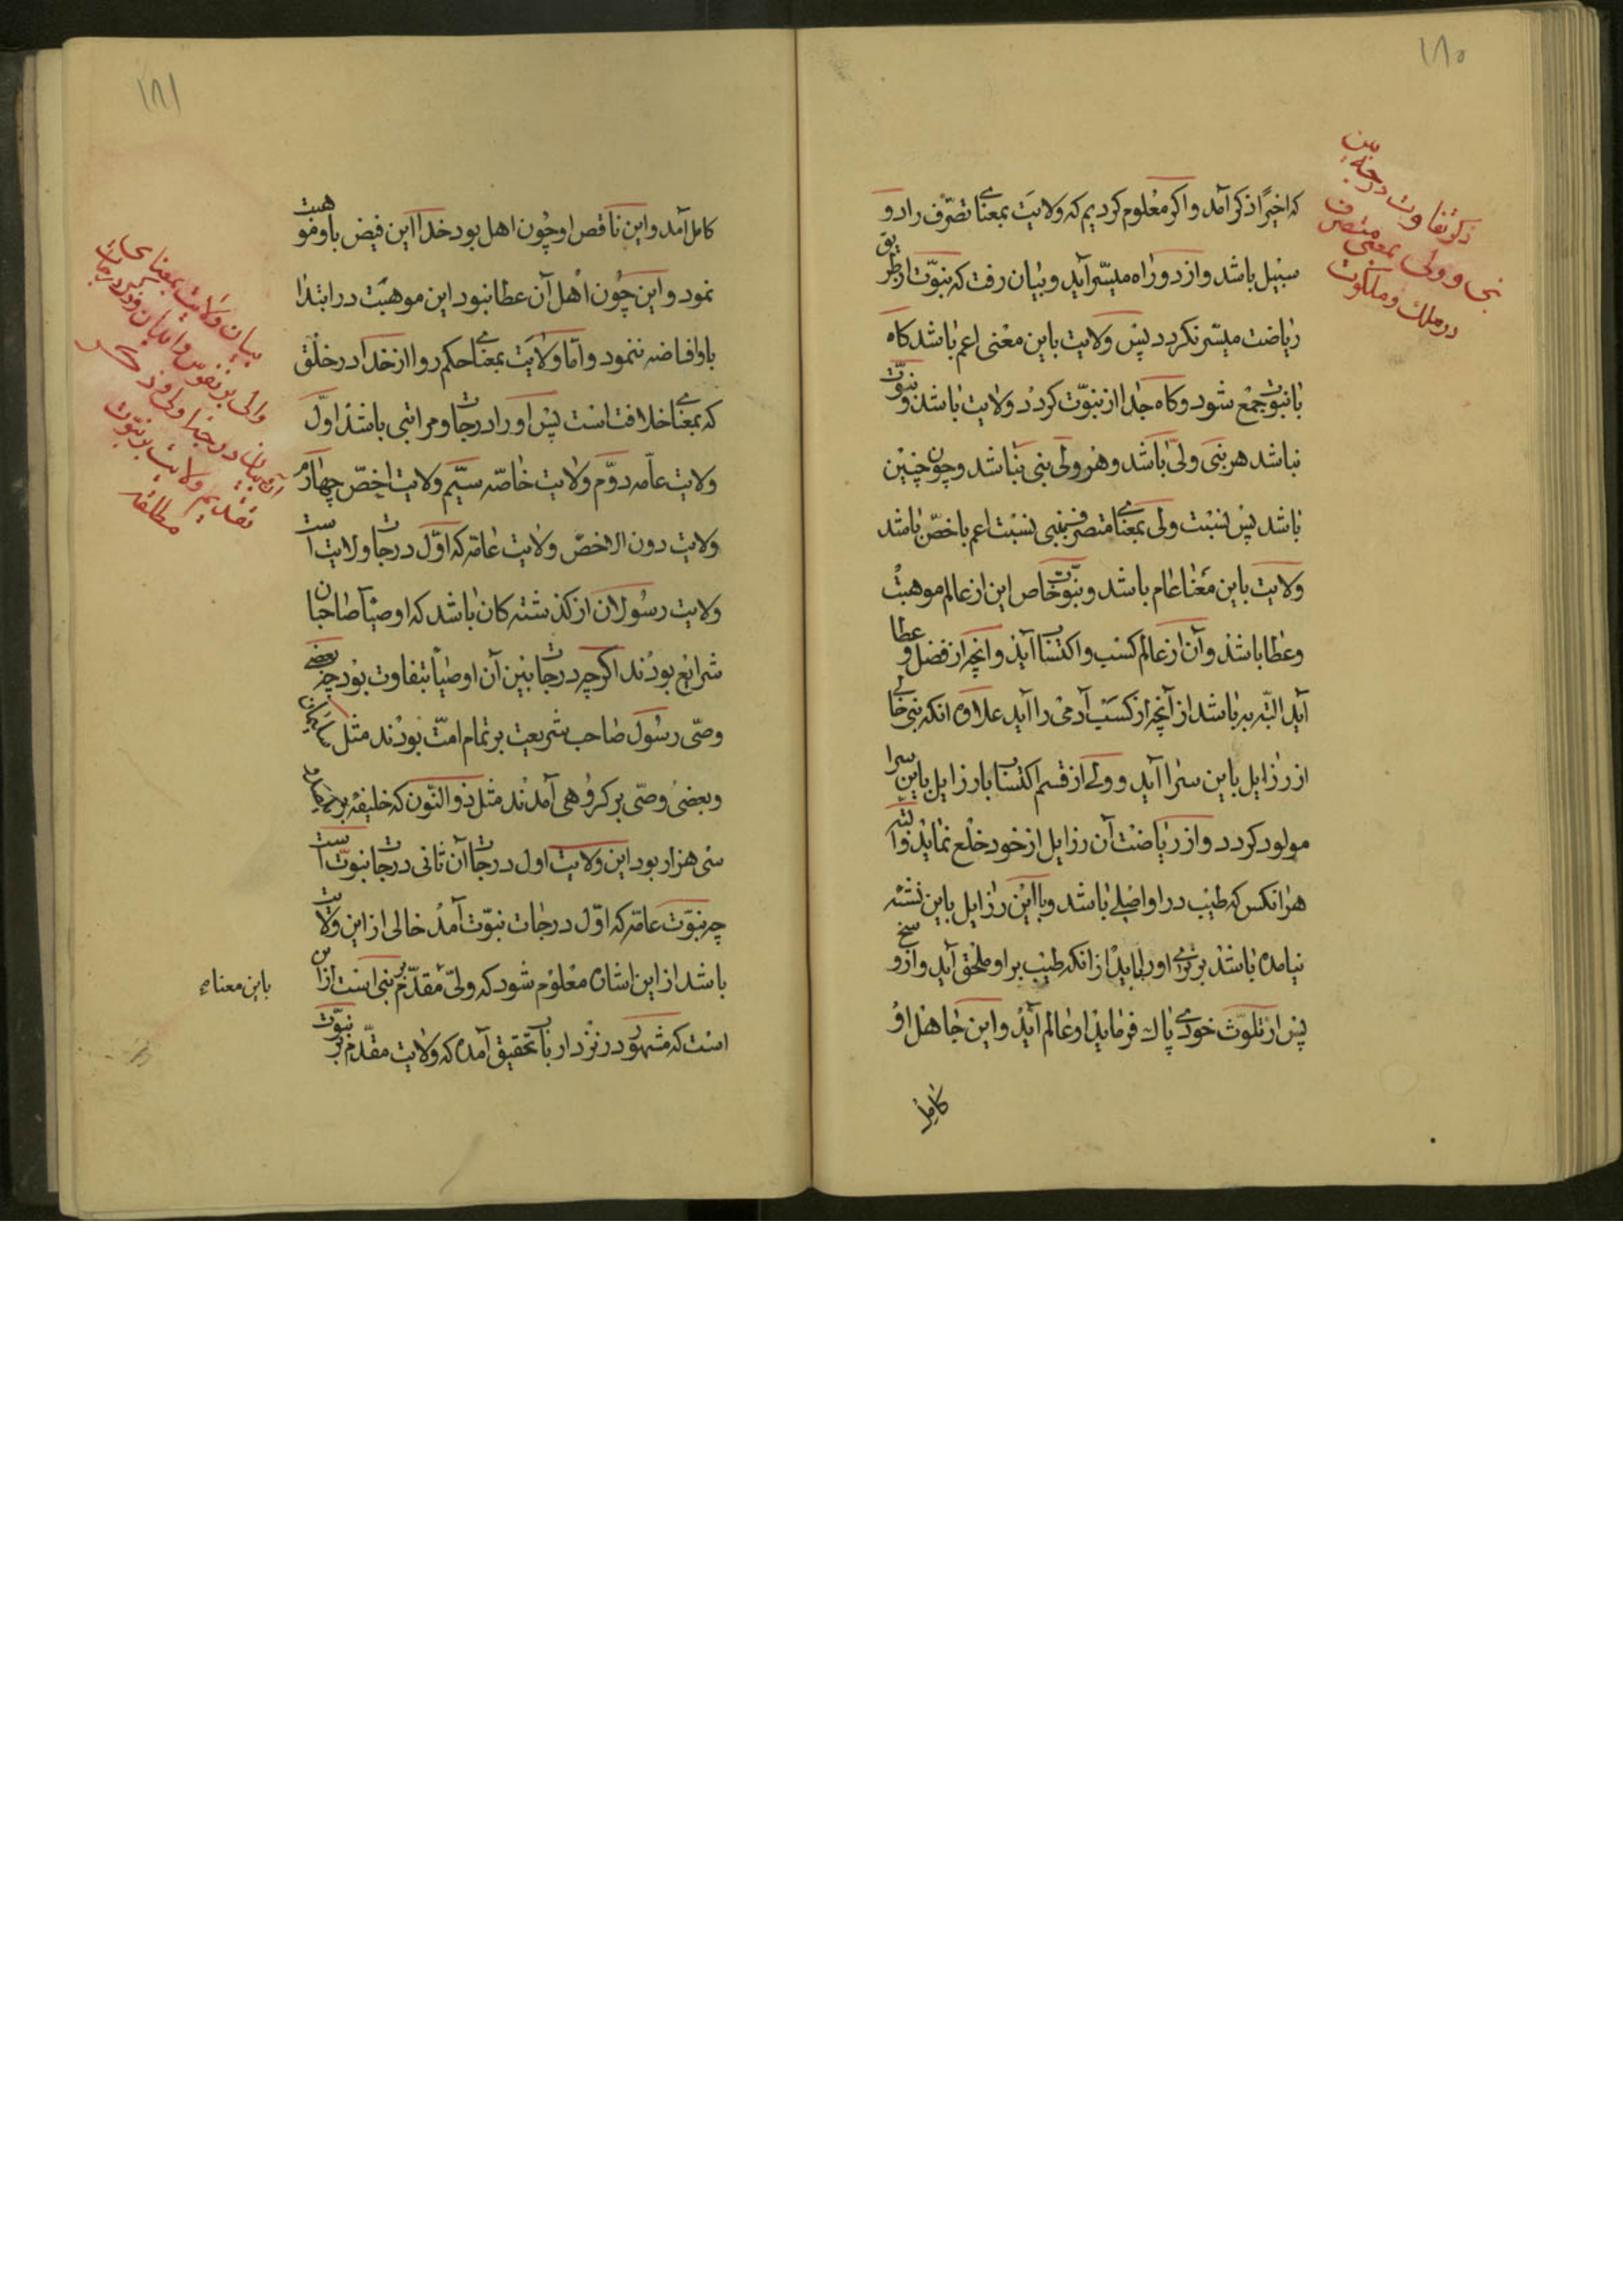 ۱۸۰
ذکر تفاوت درجهٔ بین
نبی و ولی بمعنی متصرف
در ملک و ملکوت
که اخیرًا ذکر آمد و اکر معلوم کردیم که ولایت بمعناے تصرّف را دو
سبیل باشد و از دو راه میسّر آید و بیان رفت که نبوّت از طریق
ریاضت میسّر نکردد پس ولایت باین معنی اعم باشد کاه
با نبوّت جمع شود و کاه جدا از نبوّت کردد ولایت باشد و نبوّت
نباشد هر نبی ولیّ باشد و هر ولی نبی نباشد و چون چنین
باشد پس نسبت ولی بمعناے متصرف بنبی نسبت اعم باخصّ باشد
ولایت باین معنا عام باشد و نبوّت خاص این از عالم موهبت
و عطا باشد و آن از عالم کسب و اکتساب آید و انچه از فضل و عطا
آید البتّه به باشد از آنچه از کسب آدمی را آید علاوه انکه نبی خالے
از رزایل باین سرا آید و ولے از قسم اکتساب با رزایل باین سرا
مولود کردد و از ریاضت آن رزایل از خود خلع نماید و البتّه
هر انکس که طیب در او اصلے باشد و با این رزایل باین نشئه
نیامده باشد برترے او را باید از انکه طیب بر او ملحق آید و از وسخ
پس از تلوّث خودے پاک فرماید او عالم آید و این جاهل او
کامل
۱۸۱
کامل آمد و این ناقص او چون اهل بود خدا این فیض باو موهبت
نمود و این چون اهل آن عطا نبود این موهبت در ابتدا
باو افاضه ننمود و امّا ولایت بمعناے حکم روا از خدا در خلق
که بمعناے خلافت است پس او را درجات و مراتبی باشد اوّل
ولایت عامّه دوّم ولایت خاصّه سیّم ولایت اخصّ چهارم
ولایت دون الاخصّ ولایت عامّه که اوّل درجات ولایت است
ولایت رسولان از کذشته کان باشد که اوصیآ صاحبان
شرایع بودند اکرچه درجات بین آن اوصیآ بتفاوت بود چه بعضے
وصّی رسول صاحب شریعت بر تمام امّت بودند مثل سلیمان
و بعضی وصّی بر کروهی آمدند مثل ذو النّون که خلیفه بر
سی هزار بود این ولایت اول درجات آن ثانی درجات نبوّت است
چه نبوّت عامّه که اوّل درجات نبوّت آمد خالی از این ولایت
باشد از این اشاره معلوم شود که ولیّ مقدّم بر نبی است از این
است که مشهور در نزد ارباب تحقیق آمده که ولایت مقدّم بر نبوّت
بیان ولایت بمعنای
والی بر نفوس و ابدان و ذکر درجات
آن بیان درجهٔ اولی و ذکر
تقدیم ولایت بر نبوّت
مطلقه
باین معناء